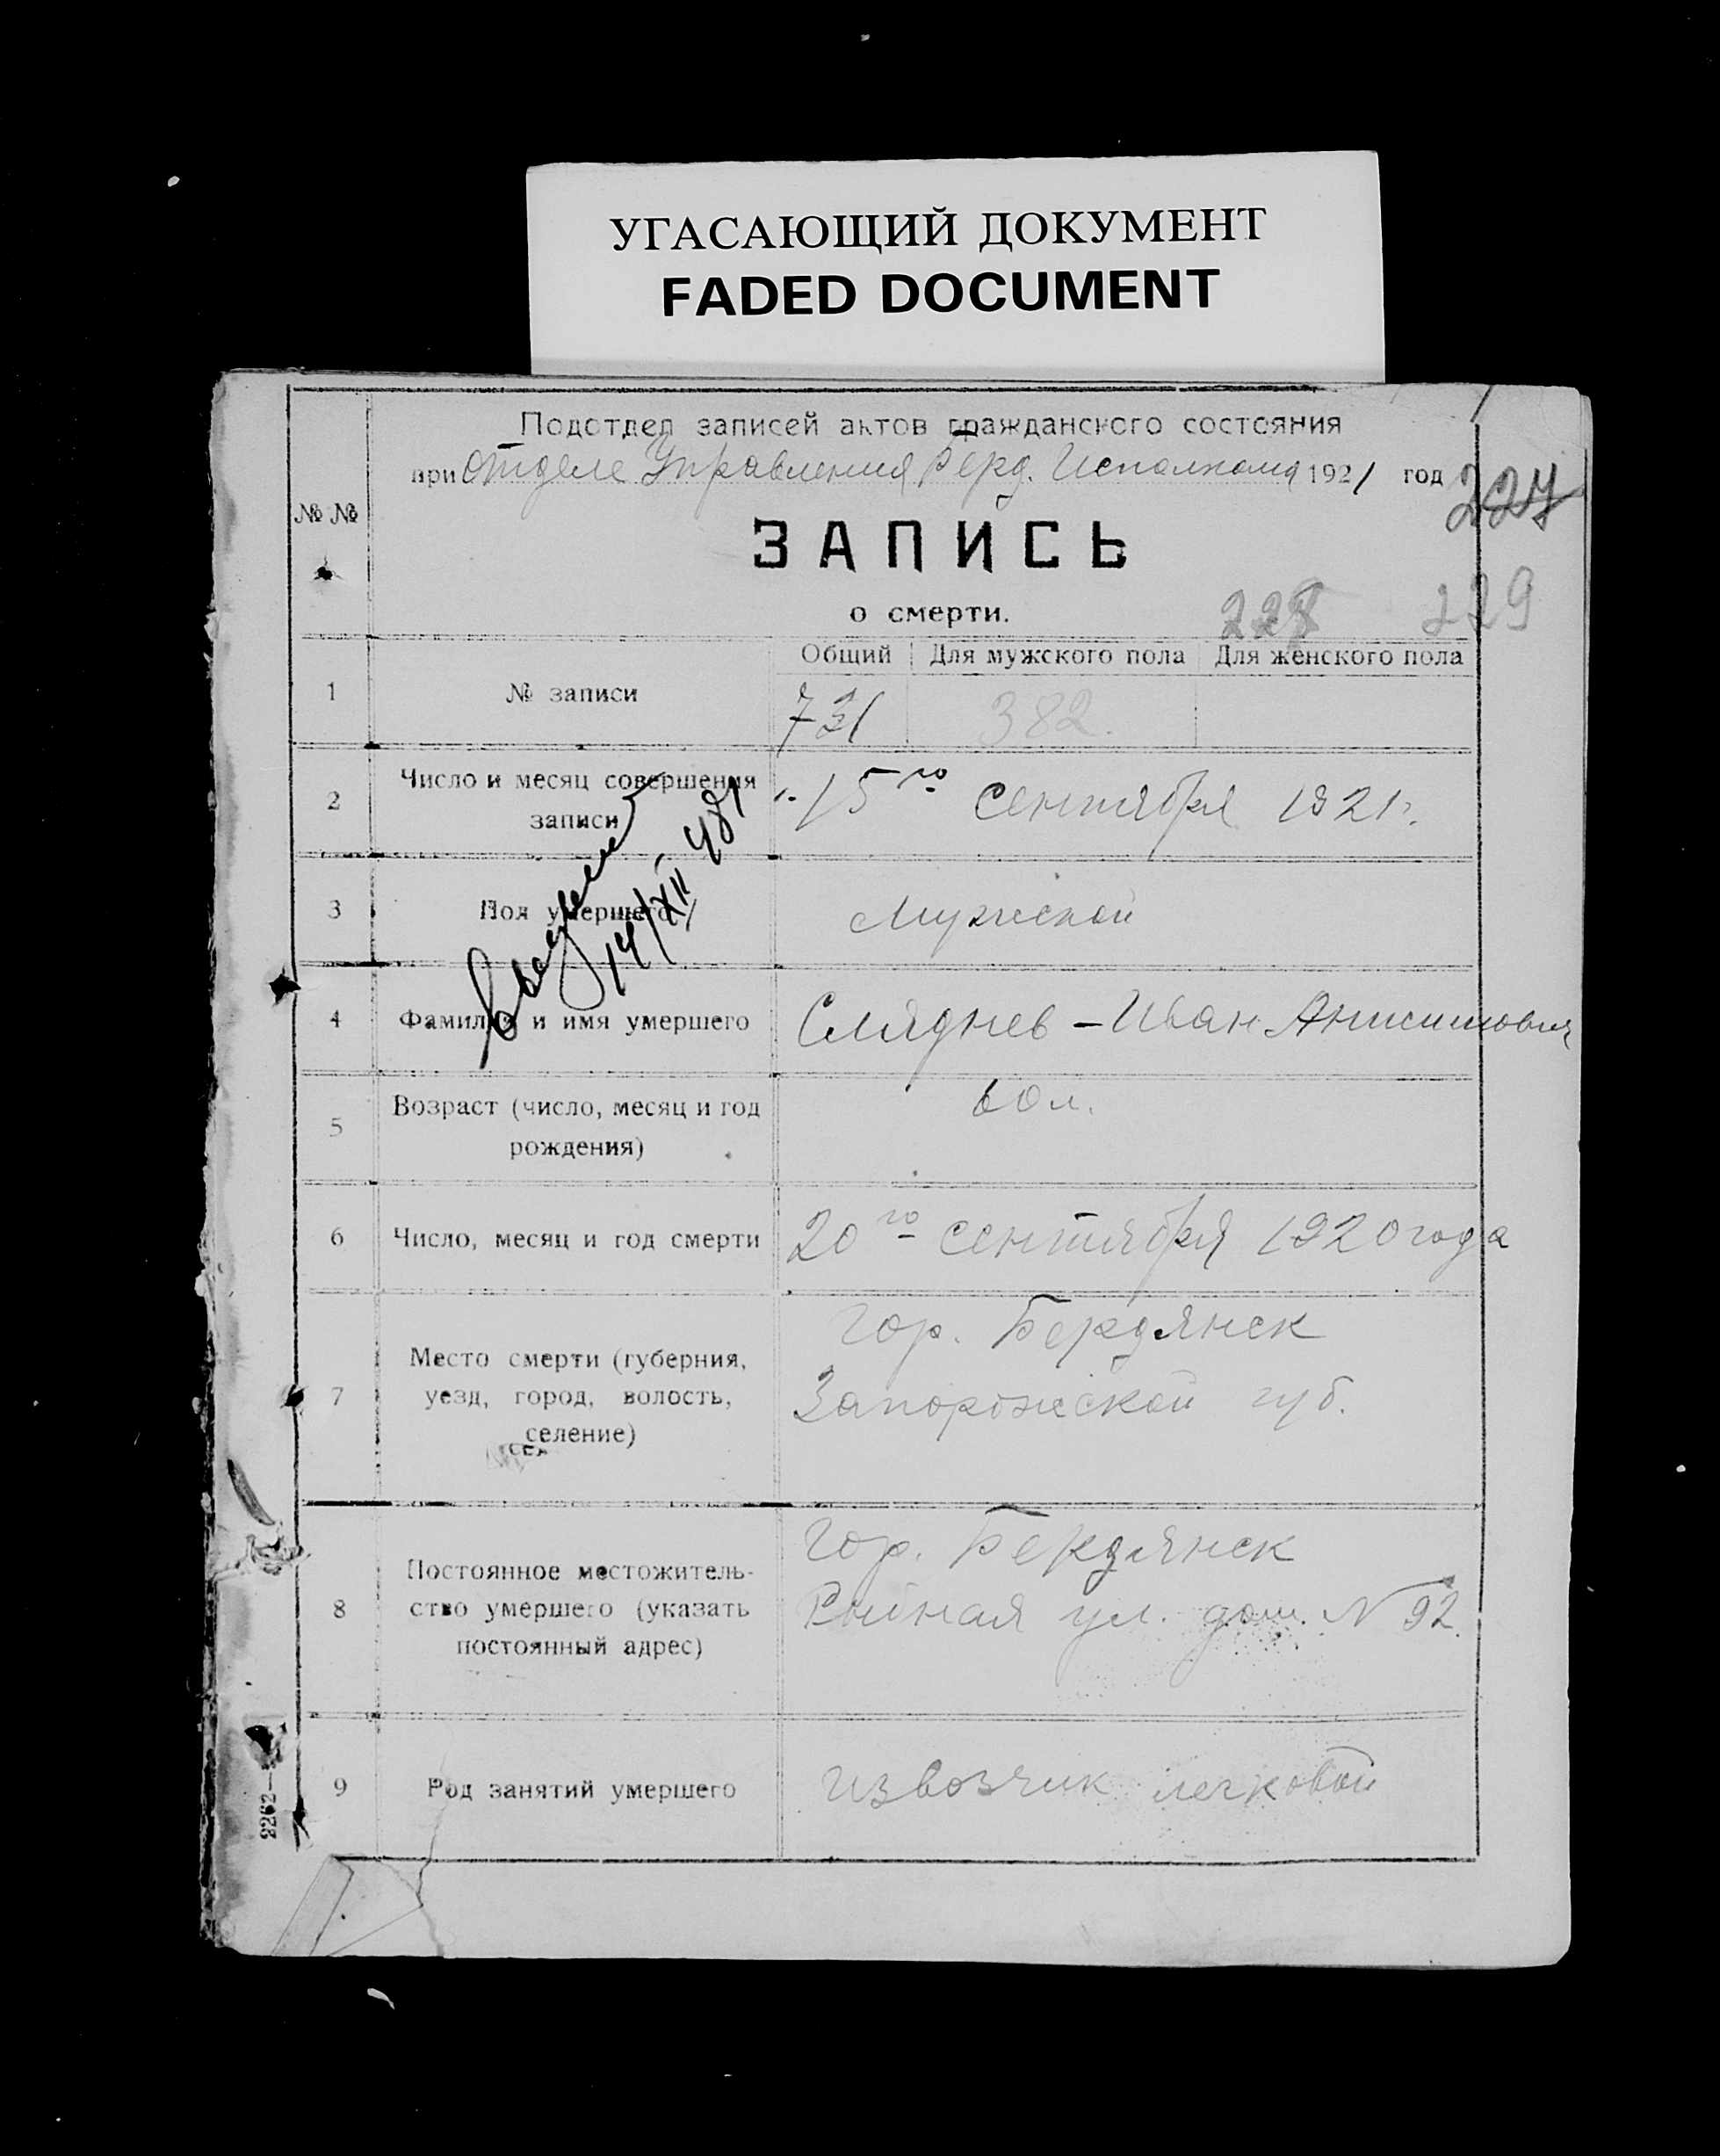 УГАСАЮЩИЙ ДОКУМЕНТ
FADED DOCUMENT
Подотдел записей актов гражданского состояния
при Отделе Управления Берд. Исполкома 1921 год
227
№ №
ЗАПИСЬ
о смерти.
228 229
Общий Для мужского пола Для женского пола
1 № записи 731 382.
2 Число и месяц совершения записи 15го сентября 1921г.
3 Пол умершего Мужской
14/XII
4 Фамилия и имя умершего Сляднев - Иван Анисимович
5 Возраст (число, месяц и год рождения) 60 л.
6 Число, месяц и год смерти 20го сентября 1920 года
7 Место смерти (губерния, уезд, город, волость, селение)
гор. Бердянск
Запорожской губ.
8 Постоянное местожитель-
ство умершего (указать
постоянный адрес)
гор. Бердянск
ул. дом. № 92.
9 Род занятий умершего извозчик легковой
2262